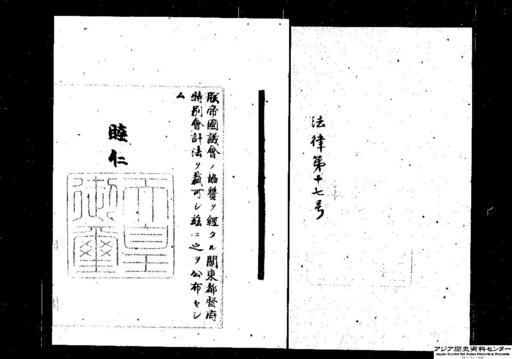 法律第十七号
朕帝國議會ノ協贊ヲ經タル關東都督府
特別會計法ヲ裁可シ茲ニ之ヲ公布セシ
ム
睦仁
天皇御璽
アジア歴史資料センター
Japan Center for Asian Historical Records